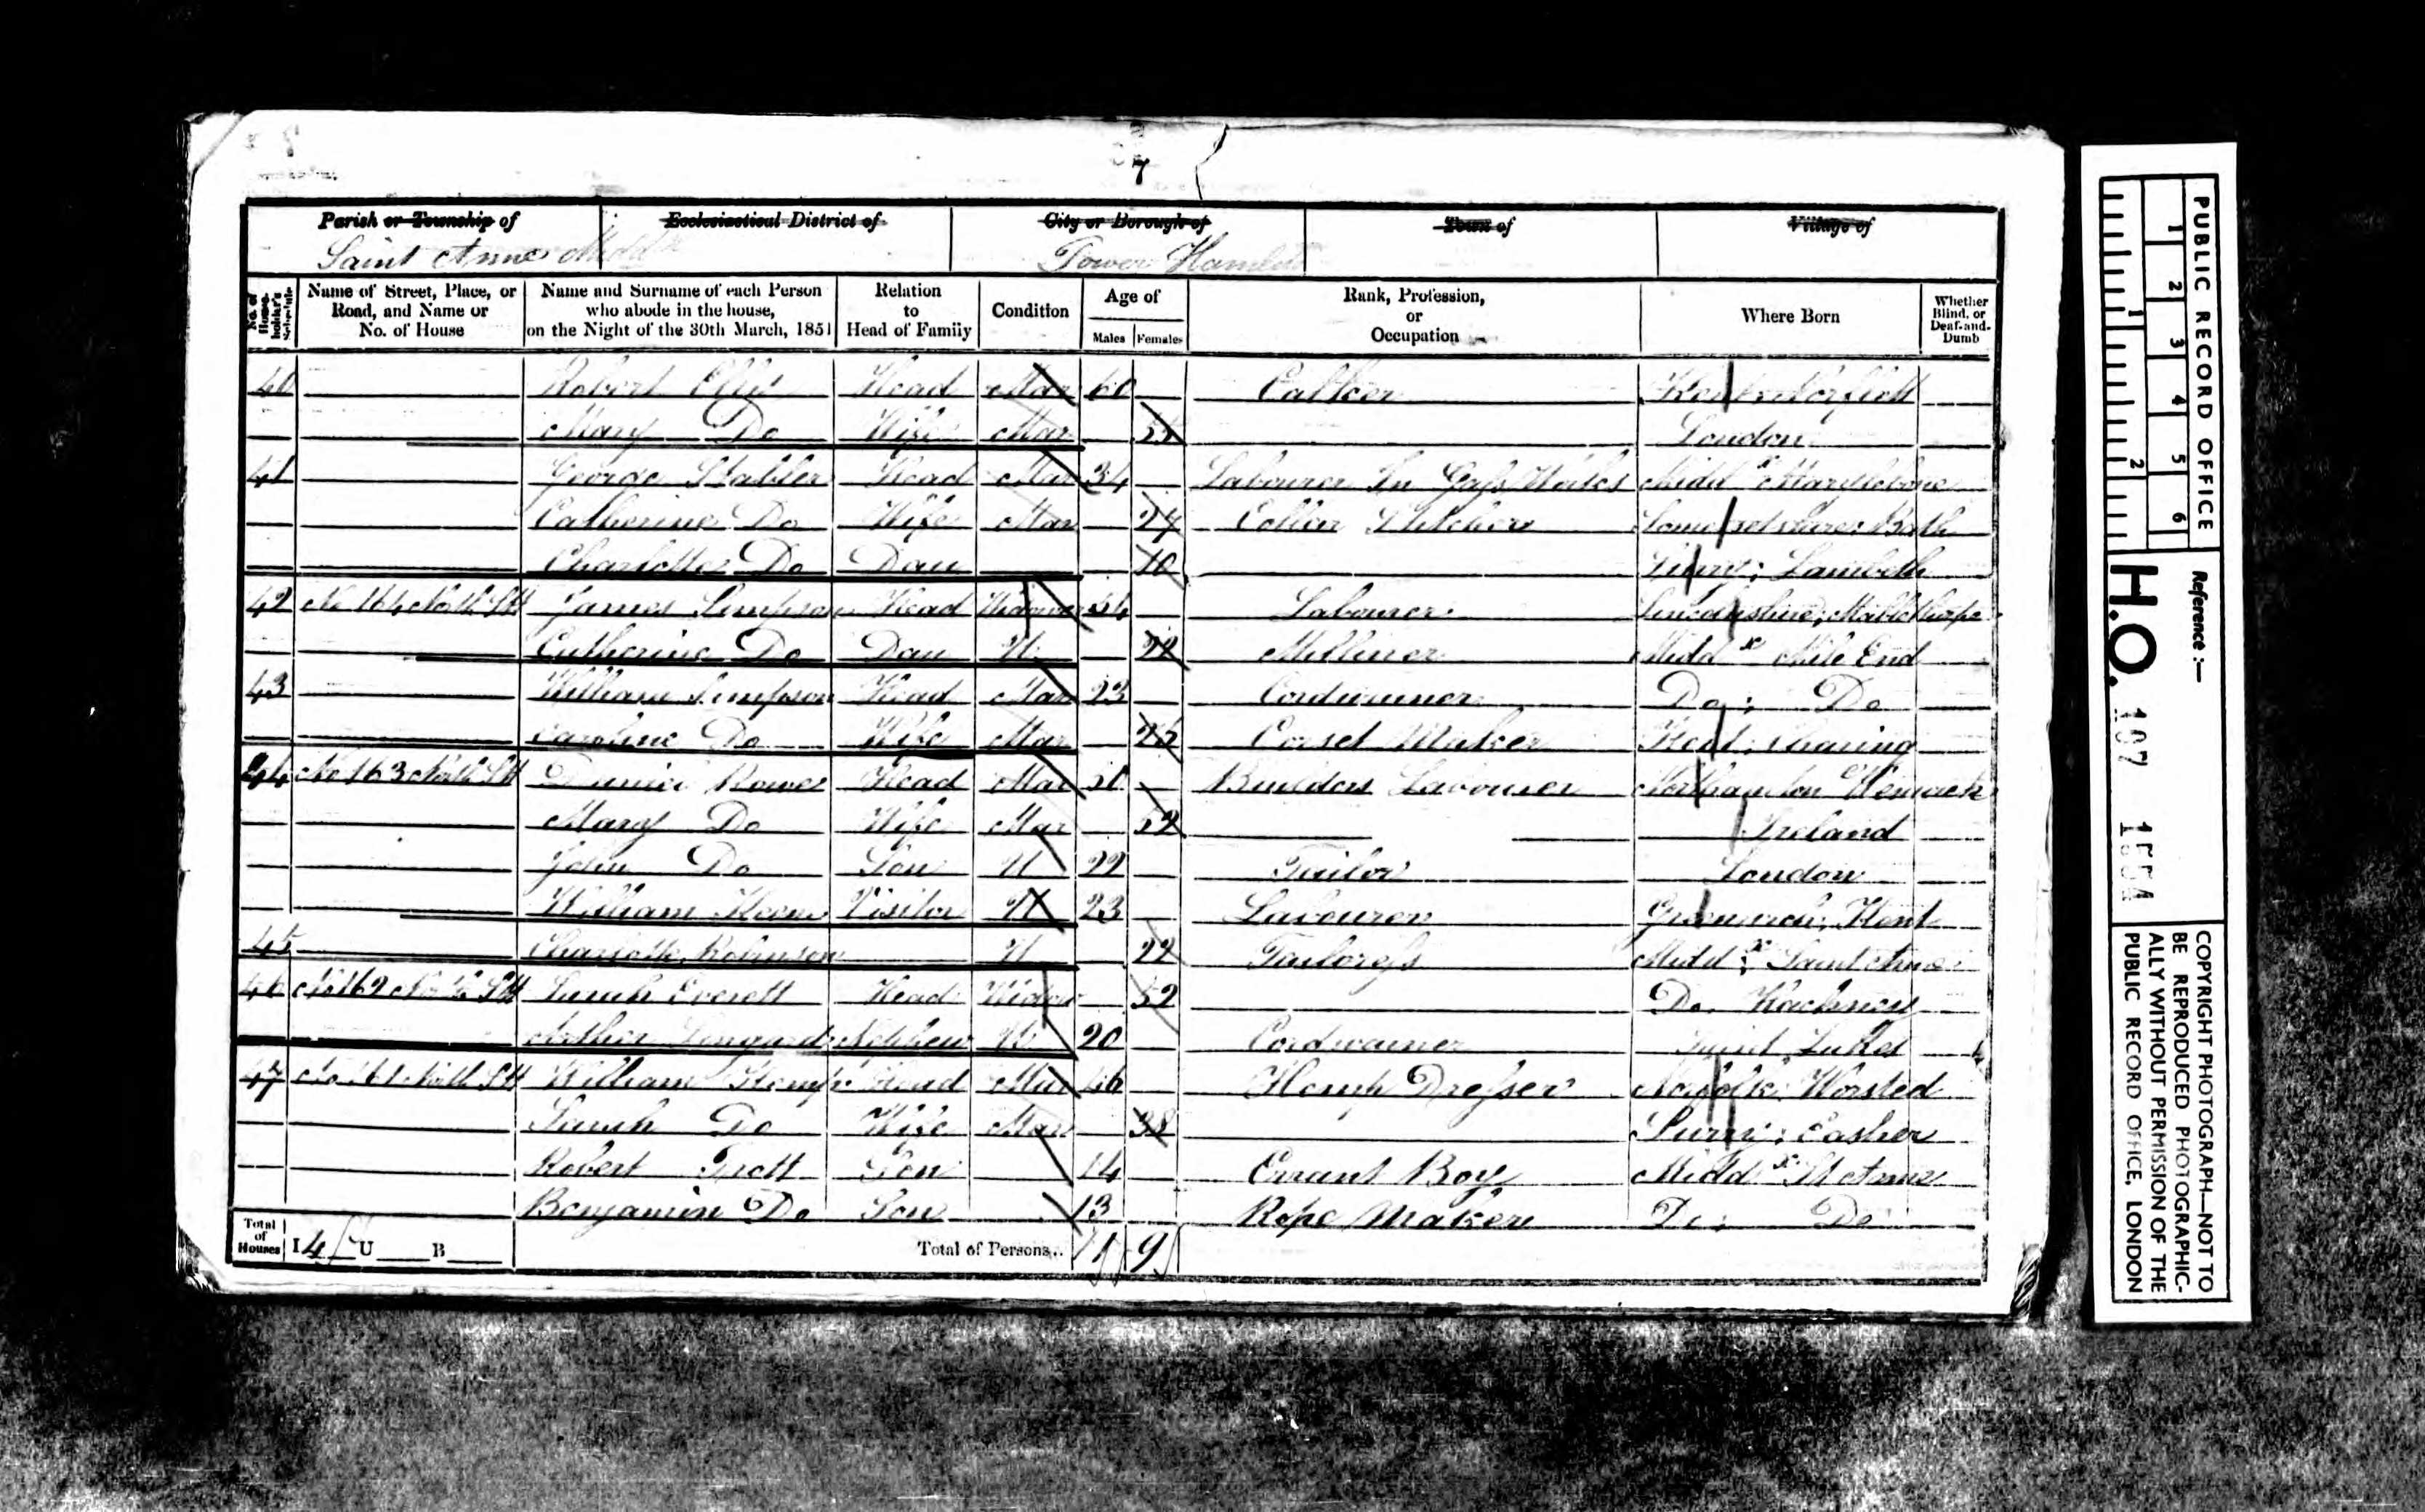 7
Parish or Township of Ecclesiastical District of City or Borough of Town of Village of
Saint Anne Middx Tower Hamlets
No. of House-holder's Schedule Name of Street, Place, or Road, and Name or No. of House Name and Surname of each Person who abode in the house, on the Night of the 30th March, 1851 Relation to Head of Family Condition Age of Males Females Rank, Profession, or Occupation Where Born Whether Blind, or Deaf-and-Dumb
40 Robert Ellis Head Mar 60 Calker Kent
Mary Do Wife Mar London
41 George Stabler Head Mar 34 Labourer In Gass Works Middx Marylebone
Catherine Do Wife Mar Collar Stitcher Somersetshire Bath
Charlotte Do Dau 10 Surry; Lambeth
42 No 164 North St James Simpson Head Widower Labourer Lincolnshire; Mablethorpe
Catherine Do Dau U 22 Milliner Middx Mile End
43 William Simpson Head Mar 23 Cordwainer Do; Do
Caroline Do Wife Mar Corset Maker Kent; Charing
44 No 163 North St Daniel Rower Head Mar Builders Labourer Northampton
Mary Do Wife Mar 52 Ireland
John Do Son U 22 Tailor London
William Keen Visitor U 23 Labourer Greenwich; Kent
45 Charlotte Robinson U 22 Tailoress Middx; Saint Anne
46 No 162 North St Sarah Everett Head Widow 52 Do Hackney
Nephew U 20 Cordwainer Saint Lukes
47 No 161 North St William Kemp Head Mar 46 Hemp Dresser Norfolk; Worsted
Sarah Do Wife Mar 38 Surry; Easher
Robert Trott Son 14 Errant Boy Middx St Anne
Benjamin Do Son 13 Rope Maker Do; Do
Total of Houses I 4 U B Total of Persons.. 11 9
PUBLIC RECORD OFFICE
1 2 3 4 5 6
1 2
Reference:—
H.O. 107 1554
COPYRIGHT PHOTOGRAPH—NOT TO
BE REPRODUCED PHOTOGRAPHIC-
ALLY WITHOUT PERMISSION OF THE
PUBLIC RECORD OFFICE, LONDON